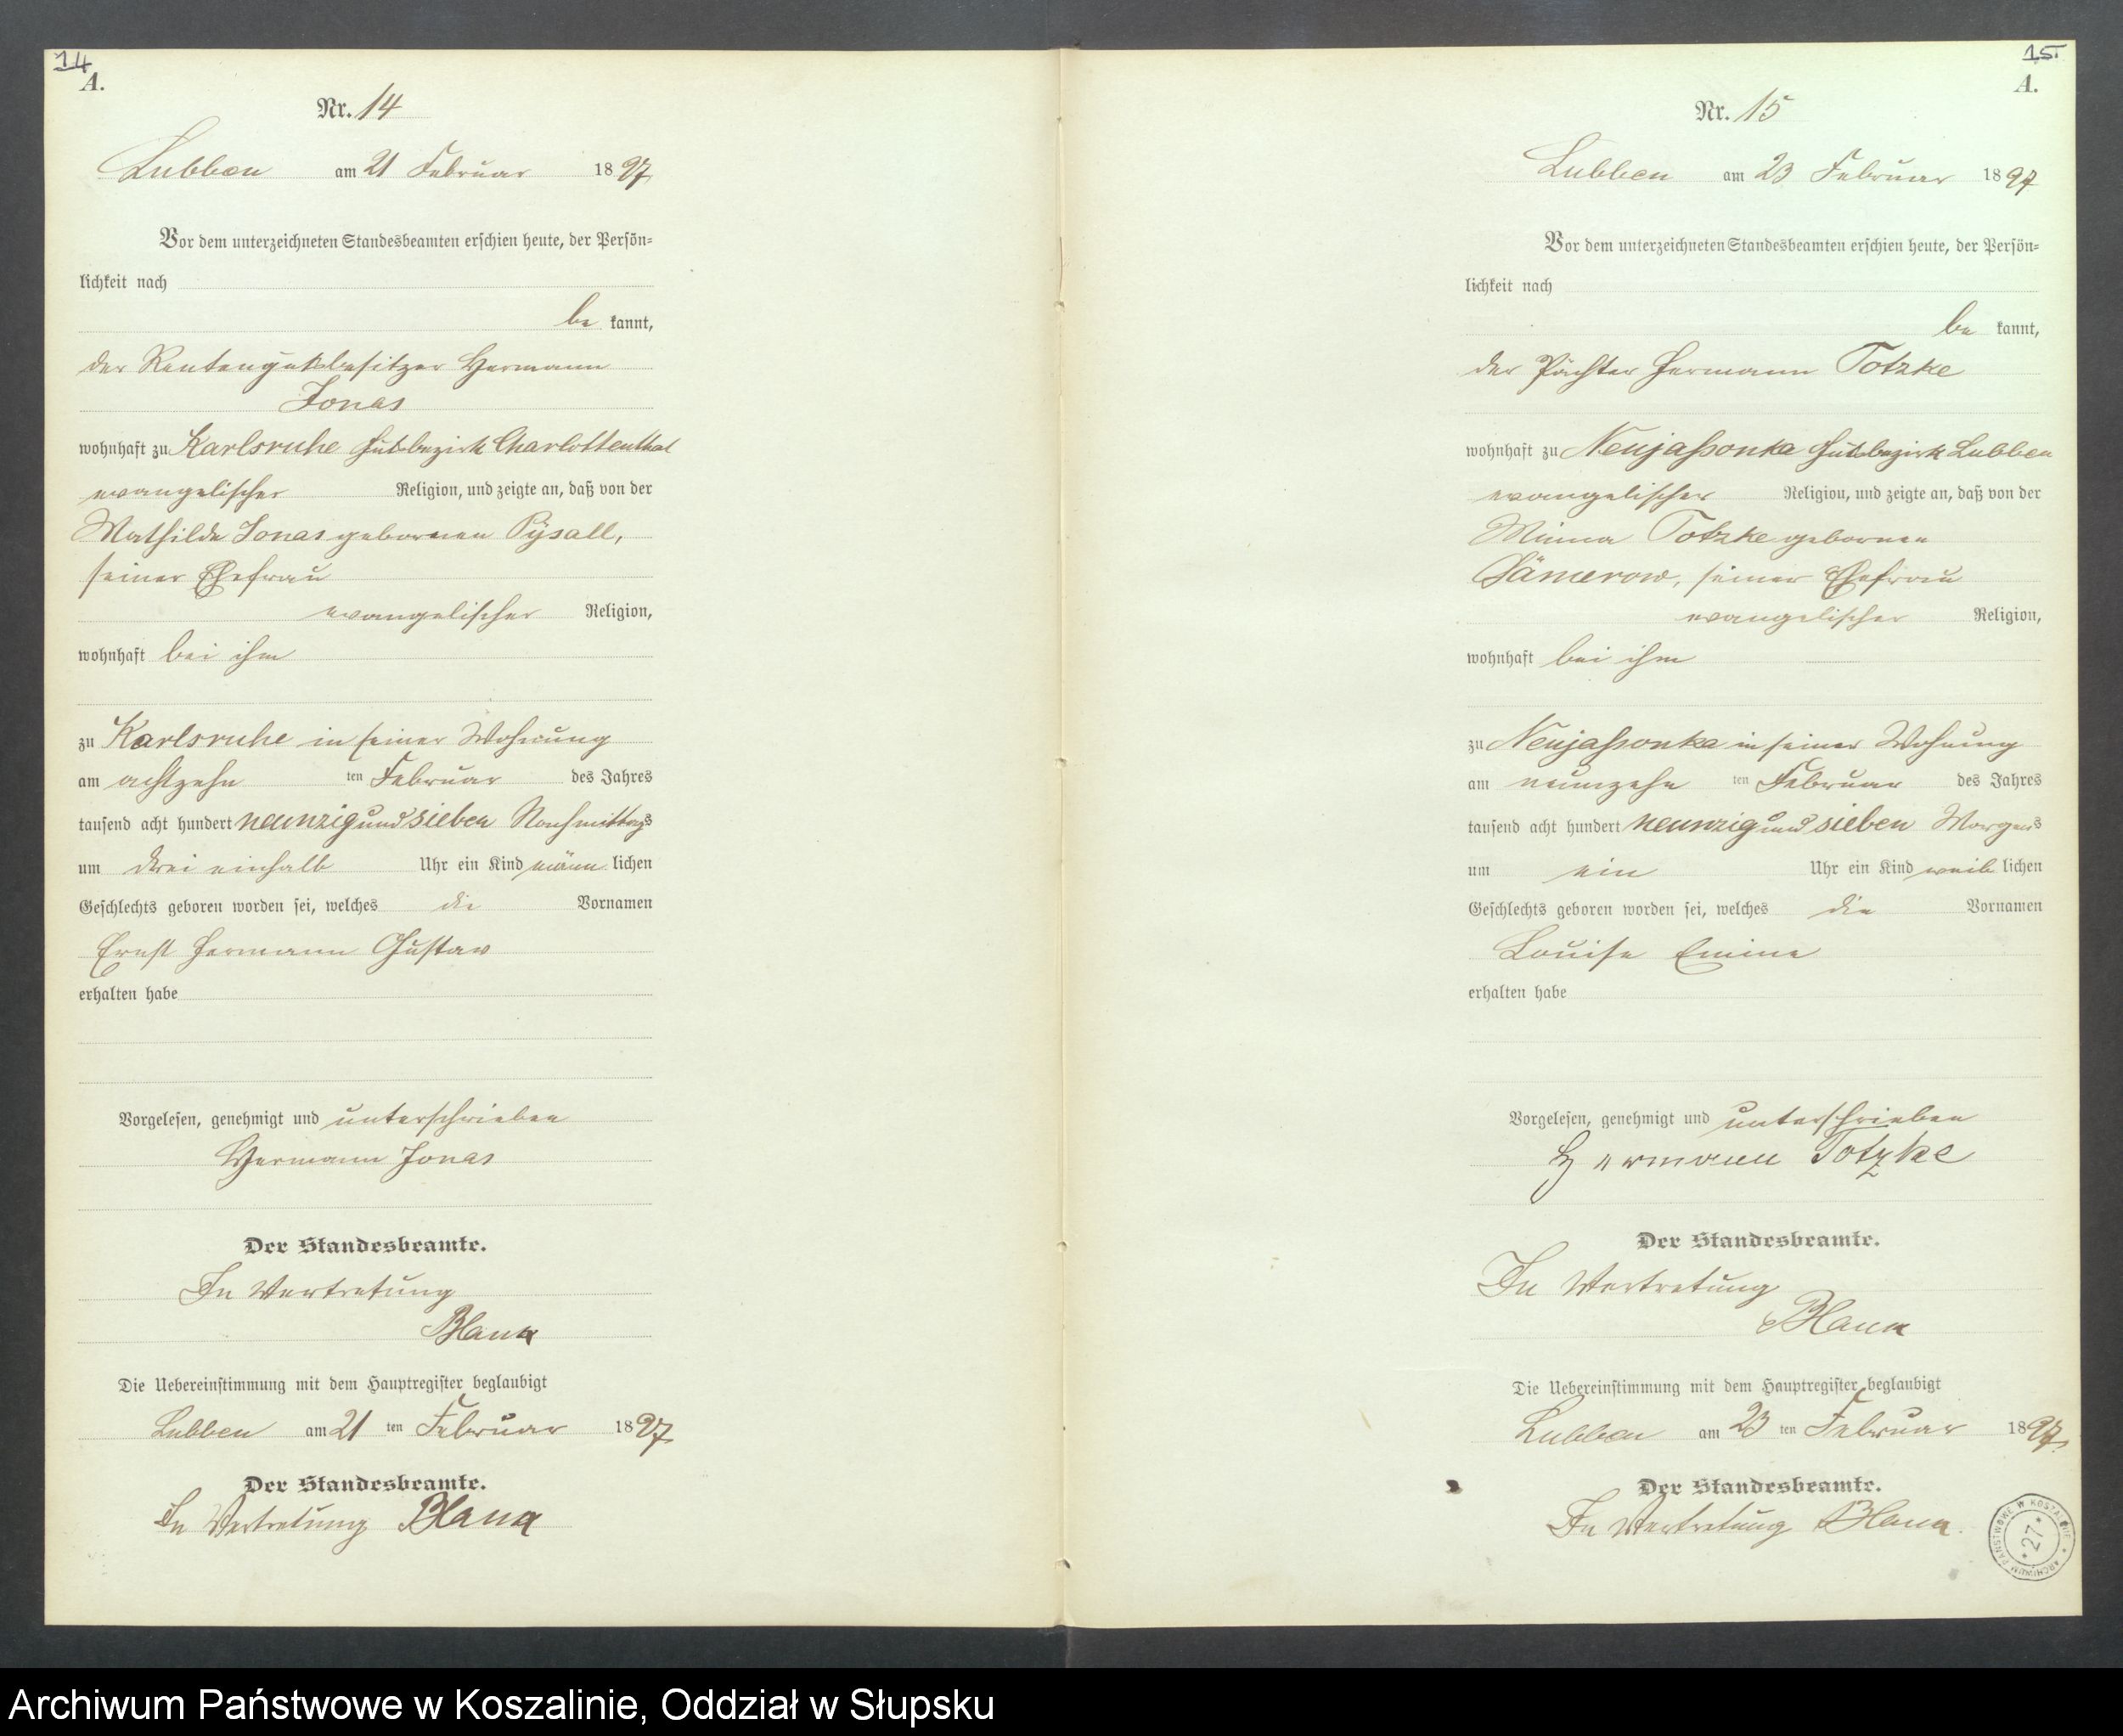 14
A.
Nr. 14
Lubben am 21 Februar 1897
Vor dem unterzeichneten Standesbeamten erschien heute, der Persön=
lichkeit nach
be kannt,
der Rentengutsbesitzer Hermann
Jonas
wohnhaft zu Karlsruhe Gutsbezirk Charlottenthal
evangelischer Religion, und zeigte an, daß von der
Mathilde Jonas gebornen Pÿsall,
seiner Ehefrau
evangelischer Religion,
wohnhaft bei ihm
zu Karlsruhe in seiner Wohnung
am achtzehn ten Februar des Jahres
tausend acht hundert neunzig und sieben Nachmittags
um drei einhalb Uhr ein Kind männ lichen
Geschlechts geboren worden sei, welches die Vornamen
Ernst Hermann Gustav
erhalten habe
Vorgelesen, genehmigt und unterschrieben
Hermann Jonas
Der Standesbeamte.
In Vertretung
Die Uebereinstimmung mit dem Hauptregister beglaubigt
Lubben am 21 ten Februar 1897
Der Standesbeamte.
In Vertretung
15
A.
Nr. 15
Lubben am 23 Februar 1897
Vor dem unterzeichneten Standesbeamten erschien heute, der Persön=
lichkeit nach
be kannt,
der Pächter Hermann Totzke
wohnhaft zu Neujassonka Gutsbezirk Lubben
evangelischer Religion, und zeigte an, daß von der
Minna Totzke gebornen
seiner Ehefrau
evangelischer Religion,
wohnhaft bei ihm
zu Neujassonka in seiner Wohnung
am neunzehn ten Februar des Jahres
tausend acht hundert neunzig und sieben Morgens
um ein Uhr ein Kind weib lichen
Geschlechts geboren worden sei, welches die Vornamen
Louise Emine
erhalten habe
Vorgelesen, genehmigt und unterschrieben
Hermann Totzke
Der Standesbeamte.
In Vertretung
Die Uebereinstimmung mit dem Hauptregister beglaubigt
Lubben am 23 ten Februar 1897
Der Standesbeamte.
In Vertretung
ARCHIWUM PAŃSTWOWE W KOSZALINIE
* 27 *
Archiwum Państwowe w Koszalinie, Oddział w Słupsku